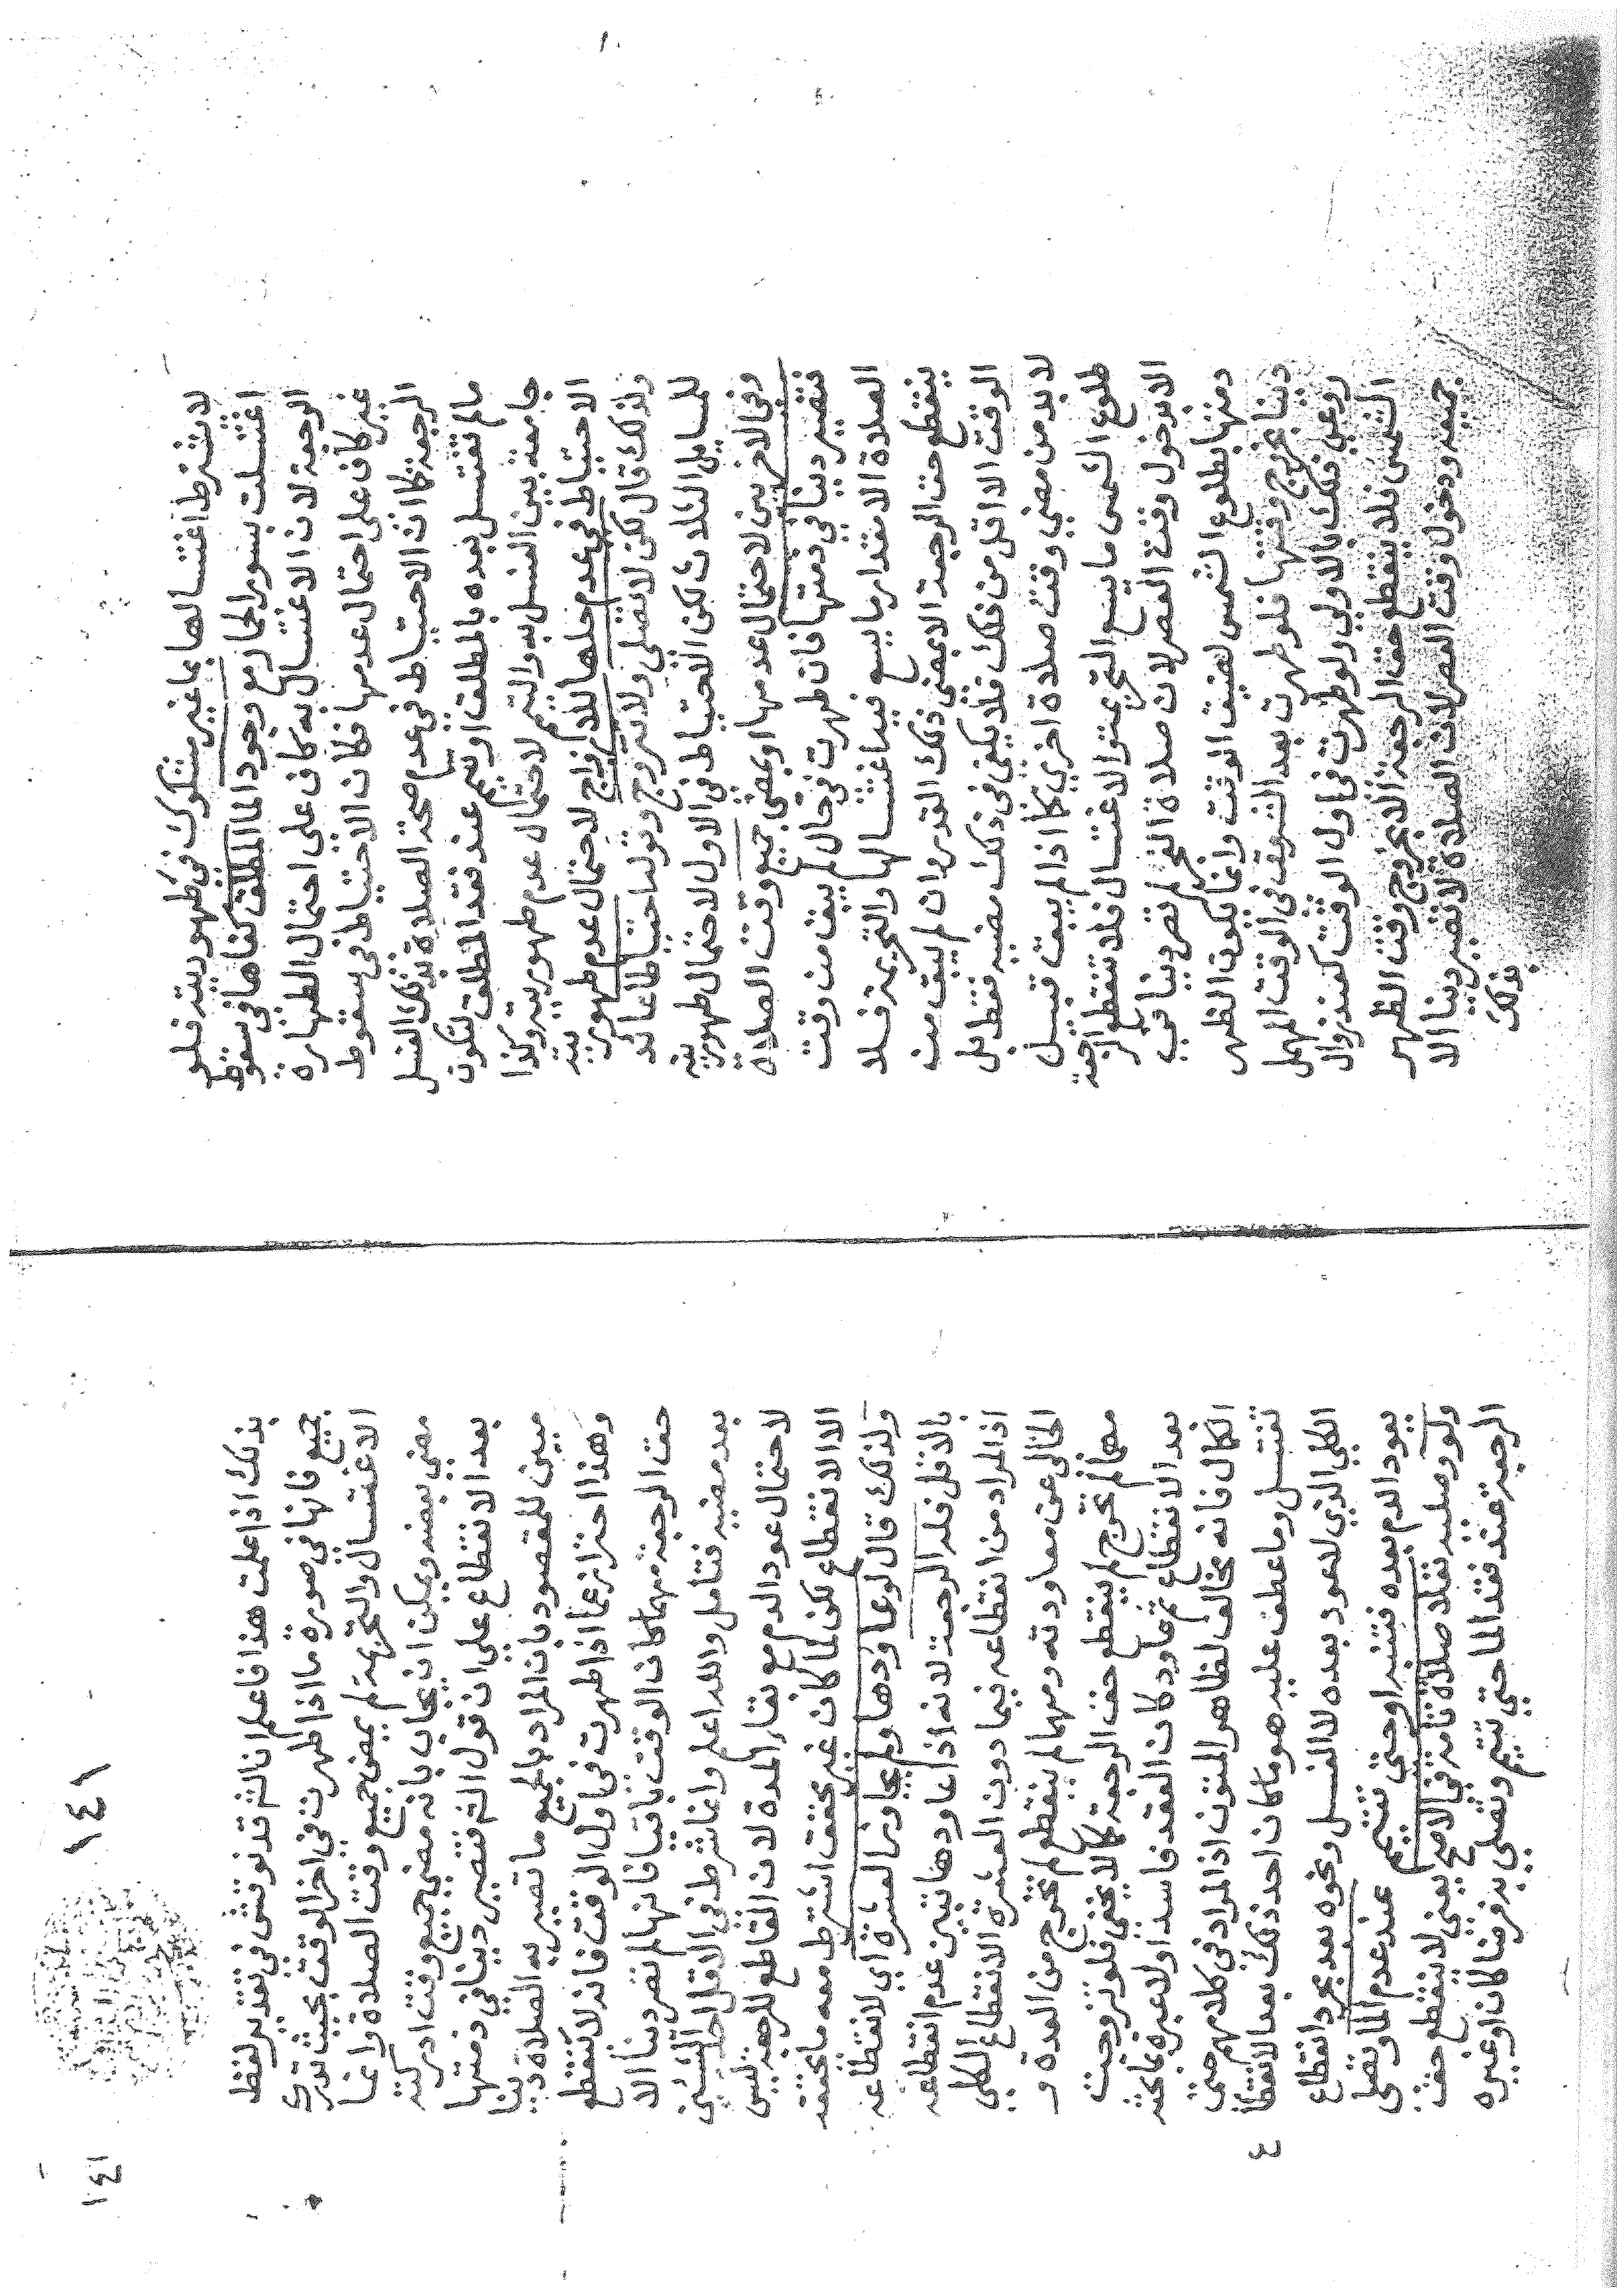 لاشترط اغتسالها بماغير مشكوك في طهوريته فلو
اغتسلت بسور الحمار مع وجود الما المطلق كفاها في سقوط
الرجعة لان الاغتسال به كاف على احتمال الطهارة
غير كاف على احتمال عدمها فكان الاحتياط في سقوط
الرجعة كما ان الاحتياط في عدم صحة الصلاة بذلك الغسل
مالم تغتسل بعده بالمطلق او تيمم عند فقد المطلق لتكون
جامعة بين الغسل به والتيمم لاحتمال عدم طهوريته وكذا
الاحتياط في عدم حلها للازواج لاحتمال عدم طهوريته
ولذلك قال لكن لاتصلي ولاتتزوج وقوله احتياطا عائد
للمسايل الثلاث لكن الاحتياط في الاول لاحتمال طهوريته
وفي الاخريين لاحتمال عدمها او بمضي جميع وقت الصلاة
فتصير دينا في ذمتها فان طهرت في حال لم يبق من وقت
الصلاة الا مقدار ما يسع فيه اغتسالها والتحريمة فلا
ينقطع حق الرجعة الا بمضي ذلك القدر وان لم يبق من
الوقت الا اقل من ذلك فلا يكفي في ذلك مضيه فقط بل
لا بد من مضي وقت صلاة اخري كما اذا لم يبق قبيل
طلوع الشمس ما يسع التحريمة والاغتسال فلا تنقطع الرجعة
الا بدخول وقت العصر لان صلاة الفجر لم تصر دينا في
ذمتها بطلوع الشمس لضيق الوقت وانما يكون الظهر
دينا بخروج وقتها فلو طهرت بعد الشروق في الوقت المهمل
روعي ذلك بالاولي ولو طهرت في اول الوقت كعند زوال
الشمس فلا ينقطع حق الرجعة الا بخروج وقت الظهر
جميعه ودخول وقت العصر لان الصلاة لا تصير دينا الا
بذلك
١٤١
١٤١
بذلك اذا علمت هذا فاعلم ان الشم قد نوقش في تقدير لفظ
جميع فانها في صورة ما اذا طهرت في اخر الوقت بحيث تدرك
الاغتسال والتحريمة لم يمض جميع وقت الصلاة وانما
مضي بعضه ويمكن ان يجاب بانه مضي جميع وقت ادركته
بعد الانقطاع علي ان قول الشم فتصير دينا في ذمتها
مبين للمقصود بان المراد بالجميع ما تصير به الصلاة دينا
وهذا احتراز عما اذا طهرت في اول الوقت فانه لا تنقطع
حق الرجعة مهما كان الوقت باقيا فانها لم تصر دينا الا
بعد مضيه فتامل والله اعلم وانما شرط في الاقل احد الشيئين
لاحتمال عود الدم مع بقاء المدة لان القاطع للرجعة ليس
الا الانقطاع لكن لما كان غير محقق اشترط معه ما يحققه
ولذلك قال لو عاودها ولم يجاوز العشرة اي لانقطاعه
بالاقل فله الرجعة لانه اذا عاودها تبين عدم انقطاعه
اذ المراد من انقطاعه فيما دون العشرة الانقطاع الكلي
الخالي عن معاودته ومهما لم ينقطع لم تخرج من العدة و
مهما لم تخرج لم ينقطع حق الرجعة كما لا يخفي فلو تزوجت
بعد الانقطاع ثم عاود كان العقد فاسدا ولا عبرة بما بحثه
الكمال فانه مخالف لظاهر المتون اذ المراد في كلامهم حتي
تغتسل وما عطف عليه هو ما كان احد ذلك بعد الانقطاع
الكلي الذي لا عود بعده لا الغسل ونحوه بعد مجرد انقطاع
يعود الدم بعده فتنبه او حتي تتيمم عند عدم الما وتصلي
ولو وصليه نفلا صلاة تامة في الاصح يعني لا ينقطع حق
الرجعة عند فقد الما حتي تتيمم وتصلي به فرضا كان او غيره